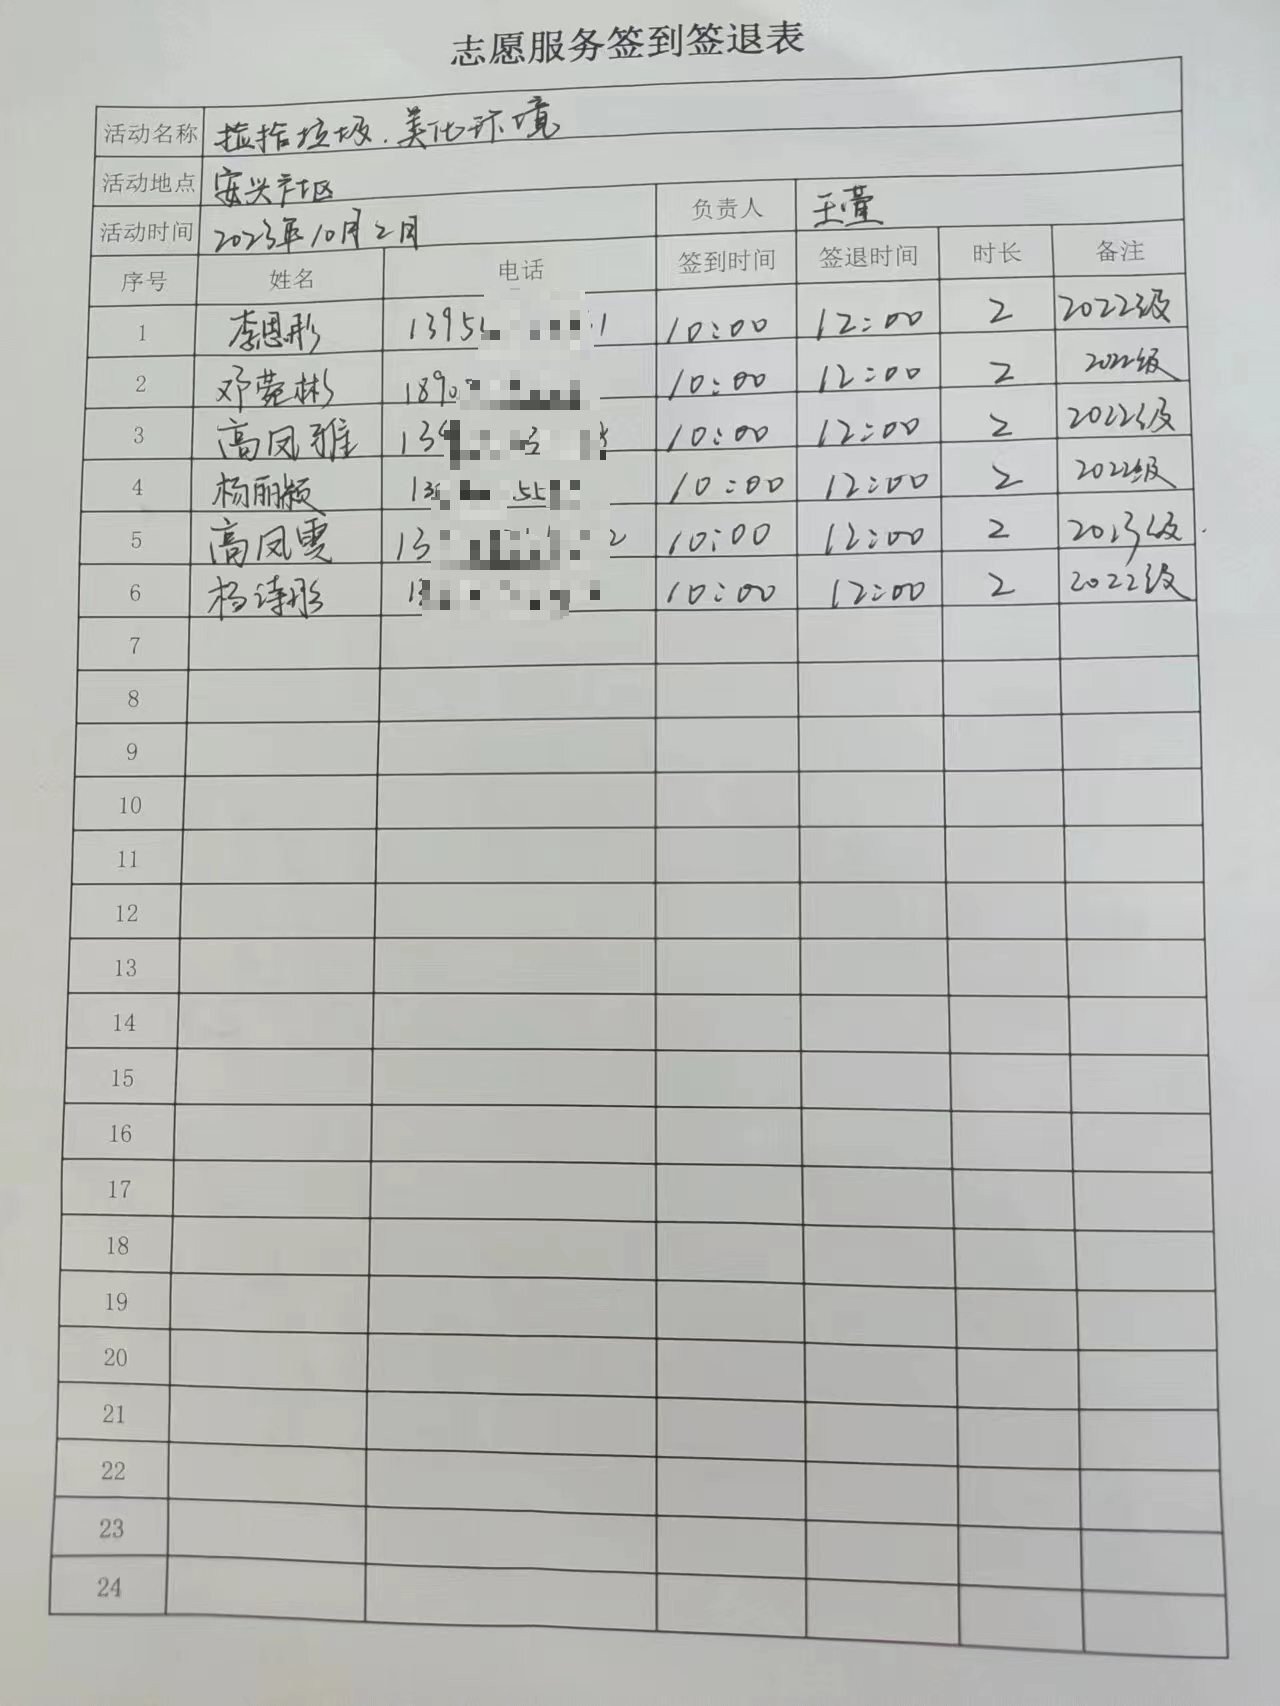 志愿服务签到签退表
活动名称 捡拾垃圾.美化环境
活动地点 安兴社区
活动时间 2023年10月2日 负责人 王萱
序号 姓名 电话 签到时间 签退时间 时长 备注
1 李恩彤 1395 1 10:00 12:00 2 2022级
2 邓菀彬 1890 10:00 12:00 2 2022级
3 高凤雅 139 10:00 12:00 2 2022级
4 杨丽颖 13 55 10:00 12:00 2 2022级
5 高凤雯 13 2 10:00 12:00 2 2023级
6 杨诗彤 1 10:00 12:00 2 2022级
7
8
9
10
11
12
13
14
15
16
17
18
19
20
21
22
23
24